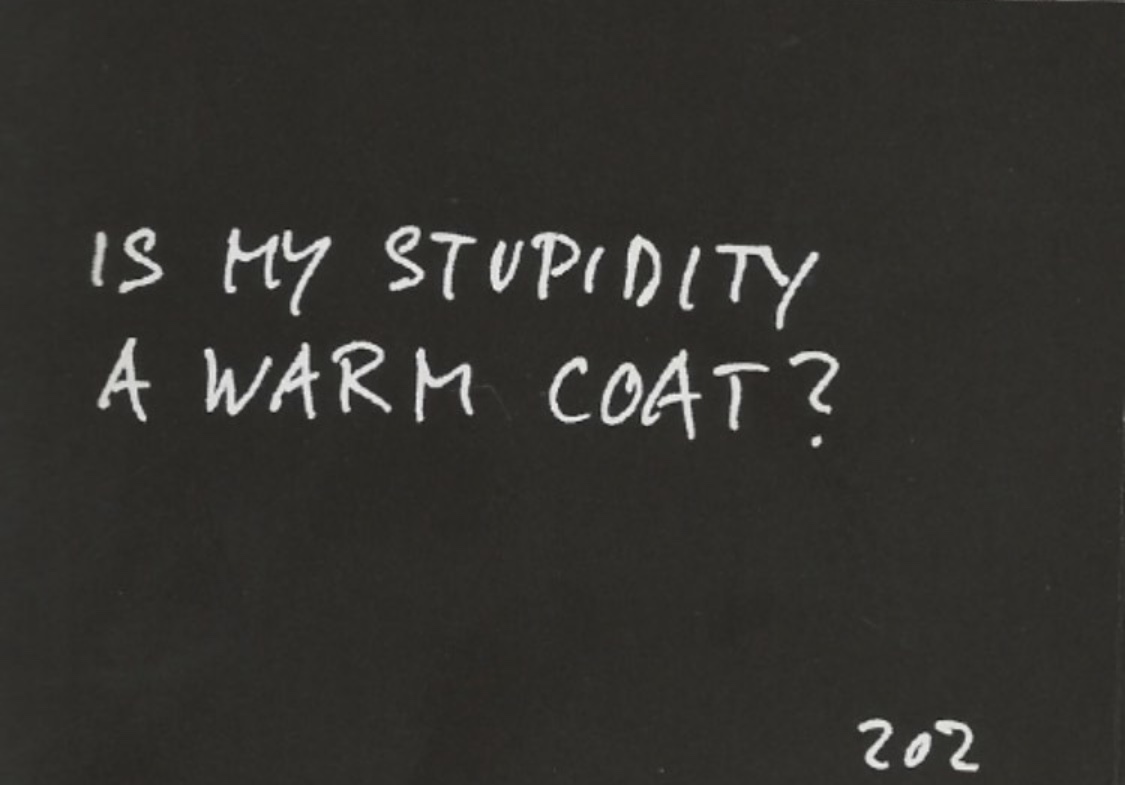 IS MY STUPIDITY
A WARM COAT?
202